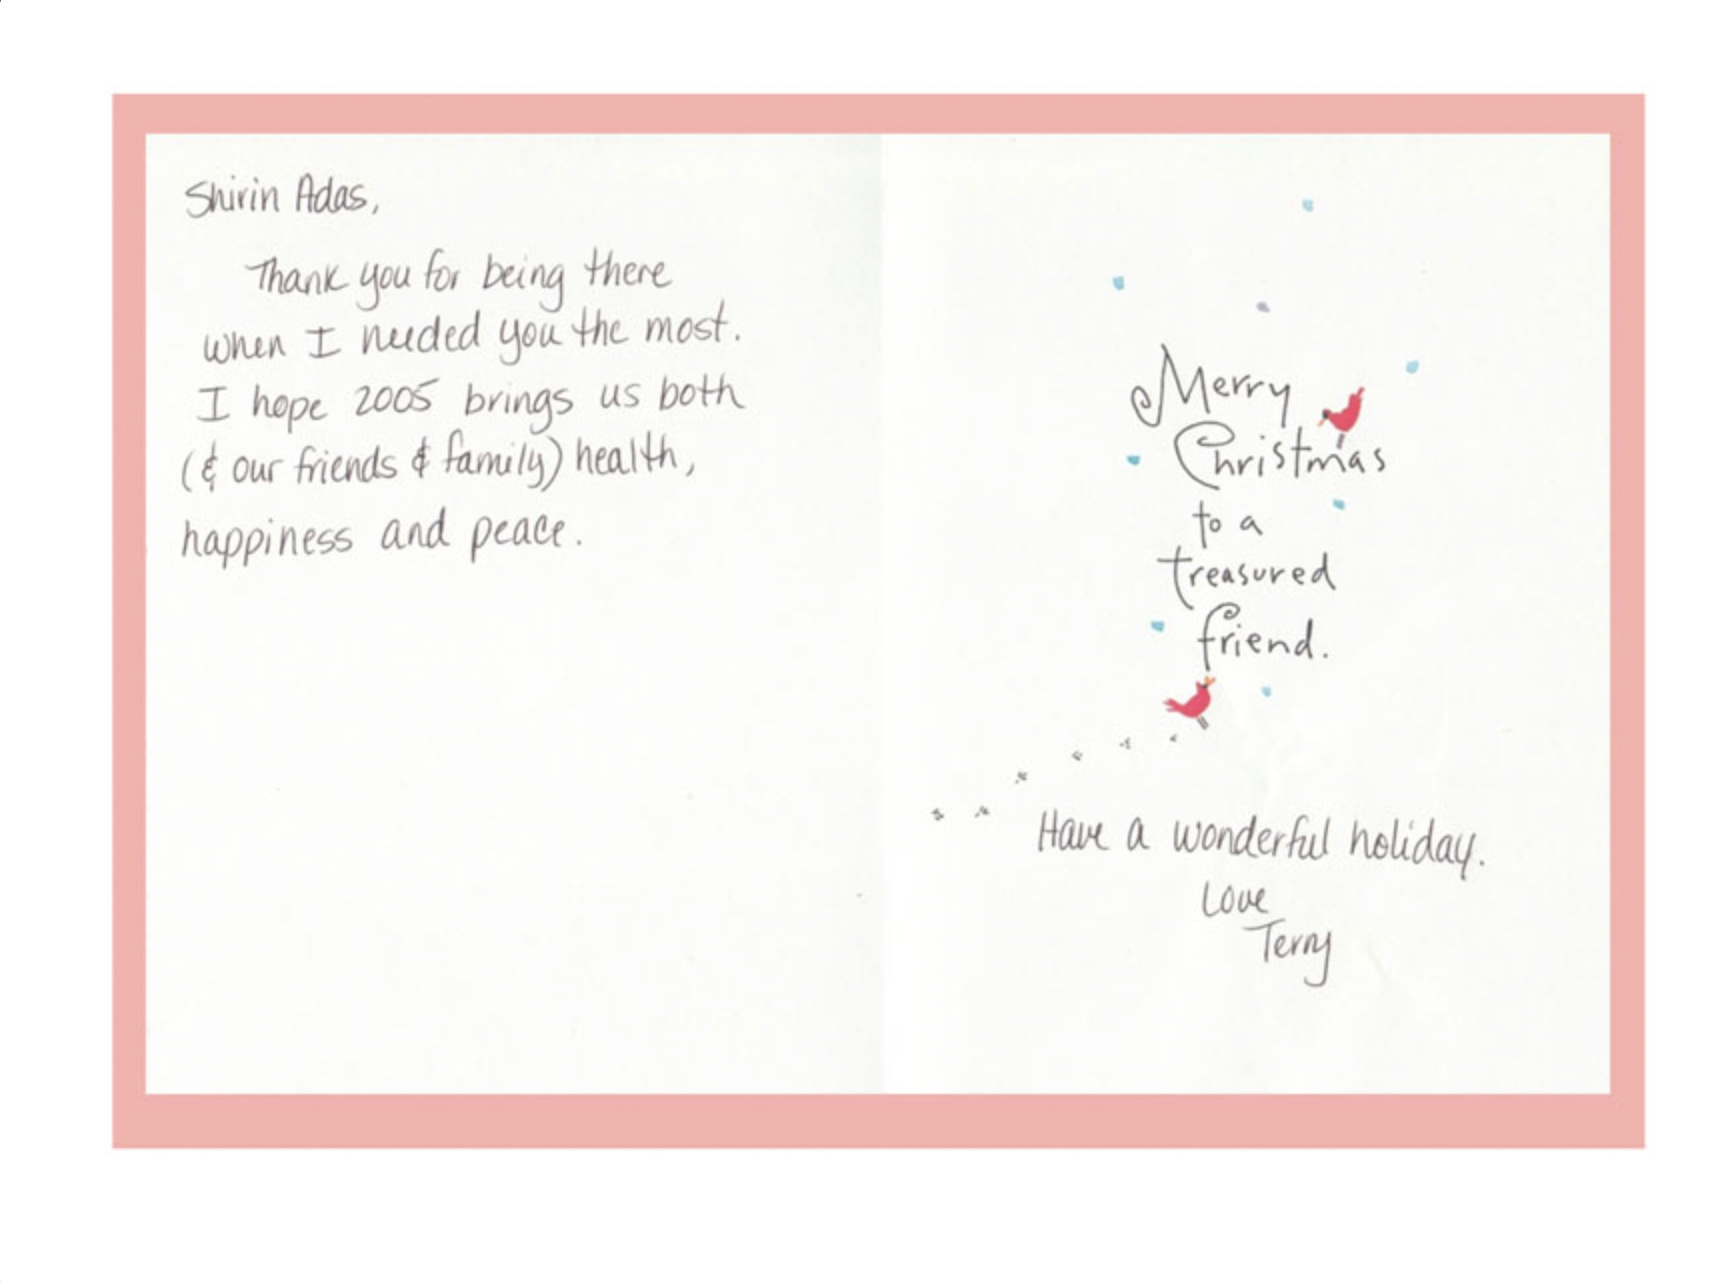 Shirin Adas,
Thank you for being there
when I needed you the most.
I hope 2005 brings us both
(& our friends & family) health,
happiness and peace.
Merry
Christmas
to a
treasured
friend.
Have a wonderful holiday.
Love
Terry